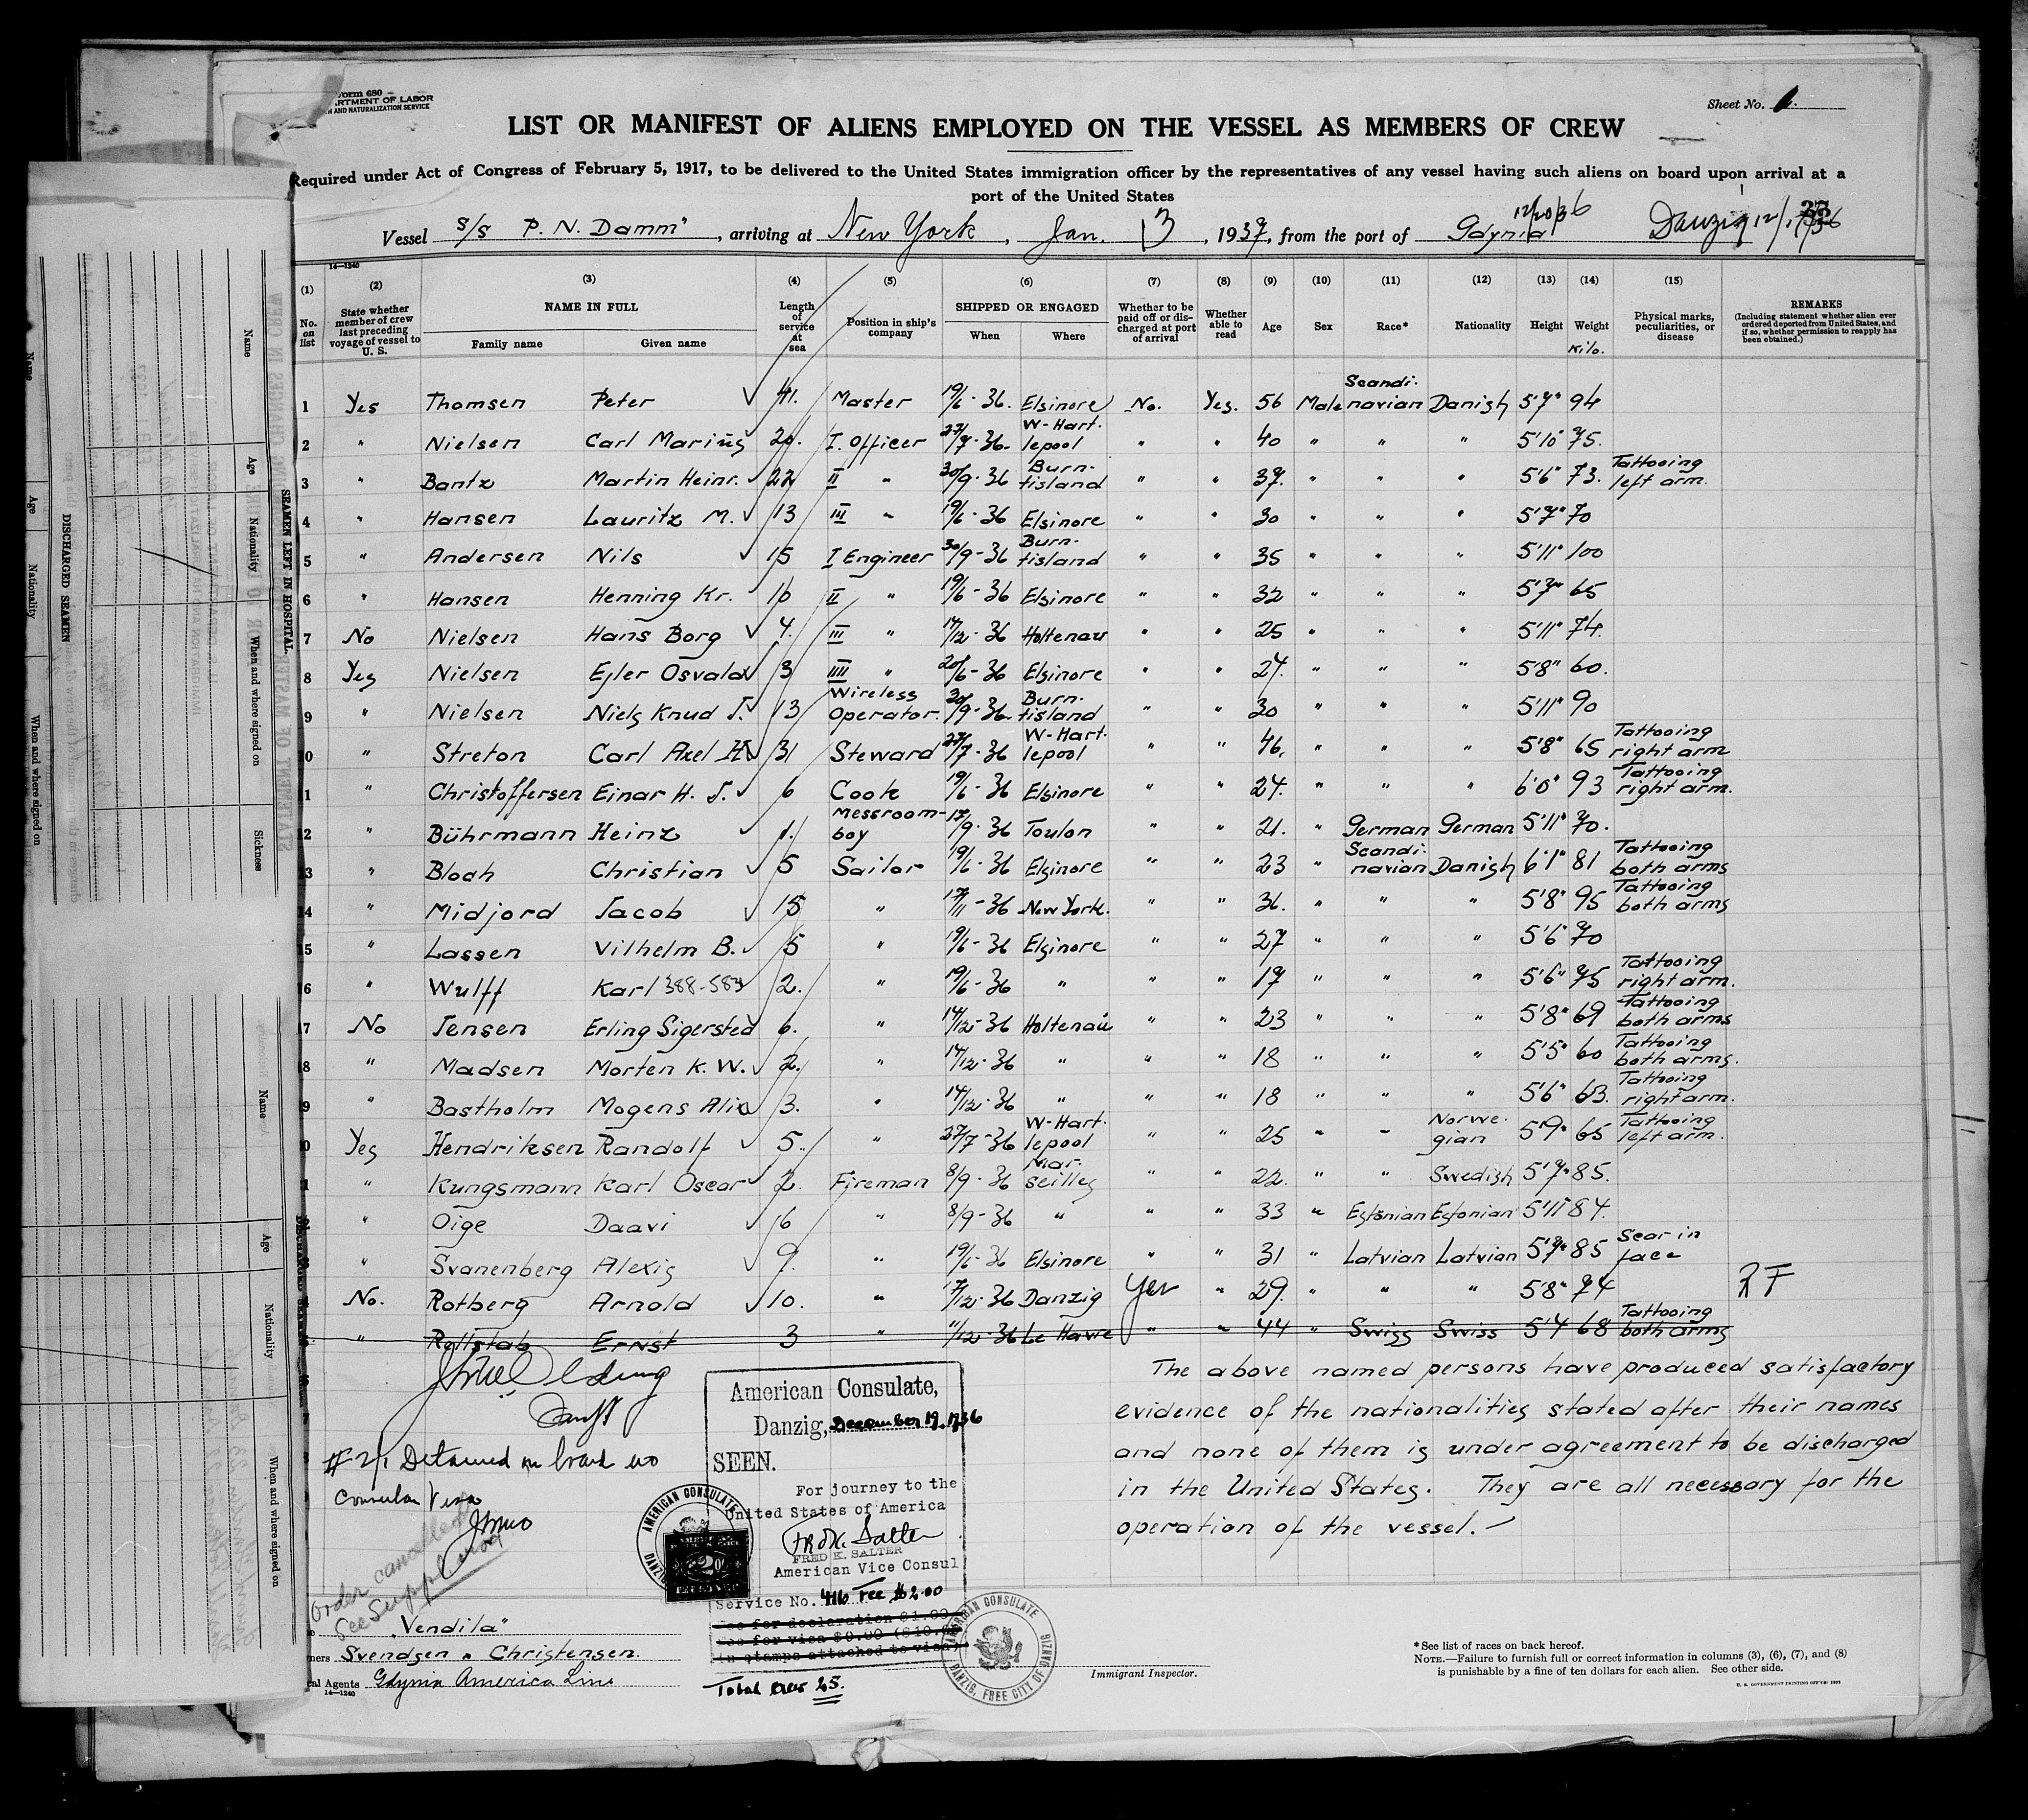 Form 680
ARTMENT OF LABOR
AND NATURALIZATION SERVICE
Sheet No. 1.
LIST OR MANIFEST OF ALIENS EMPLOYED ON THE VESSEL AS MEMBERS OF CREW
Required under Act of Congress of February 5, 1917, to be delivered to the United States immigration officer by the representatives of any vessel having such aliens on board upon arrival at a
port of the United States
Vessel S/S P. N. Damm", arriving at New York, Jan. 13, 1937, from the port of Gdynia 12/20/36 Danzig 12/
14—1240
(1) No. on list
(2) State whether member of crew last preceding voyage of vessel to U. S.
(3) NAME IN FULL Family name Given name
(4) Length of service at sea
(5) Position in ship's company
(6) SHIPPED OR ENGAGED When Where
(7) Whether to be paid off or discharged at port of arrival
(8) Whether able to read
(9) Age
(10) Sex
(11) Race*
(12) Nationality
(13) Height
(14) Weight Kilo.
(15) Physical marks, peculiarities, or disease
REMARKS (Including statement whether alien ever ordered deported from United States, and if so, whether permission to reapply has been obtained.)
1 Yes Thomsen Peter 41. Master 19/6-36. Elsinore No. Yes. 56 Male Scandinavian Danish 5'7" 94
2 " Nielsen Carl Marius 24. I. Officer 27/7-36- W-Hartlepool " " 40 " " " 5'10" 75.
3 " Bantz Martin Heinr. 22 II " 30/9-36 Burntisland " " 37. " " " 5'6" 73. Tattooing left arm.
4 " Hansen Lauritz M. 13 III " 19/6-36 Elsinore " " 30 " " " 5'7" 70
5 " Andersen Nils 15 I Engineer 30/9-36 Burntisland " " 35 " " " 5'11" 100
6 " Hansen Henning Kr. 10 II " 19/6-36 Elsinore " " 32 " " " 5'7" 65
7 No Nielsen Hans Borg 4. III " 17/12-36 Holtenau " " 25 " " " 5'11" 74.
8 Yes Nielsen Ejler Osvald 3 IIII " 20/6-36 Elsinore " " 27. " " " 5'8" 60.
9 " Nielsen Niels Knud J. 13 Wireless Operator. 30/9-36. Burntisland " " 30 " " " 5'11" 90
10 " Streton Carl Axel H. 31 Steward 27/7-36 W-Hartlepool " " 46. " " " 5'8" 65 Tattooing right arm
11 " Christoffersen Einar H. J. 6 Cook 19/6-36 Elsinore " " 24. " " " 6'0" 93 Tattooing right arm.
12 " Bührmann Heinz 1. Messroom-boy 17/9-36 Toulon " " 21. " German German 5'11" 70.
13 " Bloch Christian 5 Sailor 19/6-36 Elsinore " " 23 " Scandinavian Danish 6'1" 81 Tattooing both arms
14 " Midjord Jacob 15 " 17/11-36 New York. " " 36. " " " 5'8" 95 Tattooing both arms
15 " Lassen Vilhelm B. 5 " 19/6-36 Elsinore " " 27 " " " 5'6" 70
16 " Wulff Karl 388-583 2. " 19/6-36 " " " 17 " " " 5'6" 75 Tattooing right arm.
17 No Jensen Erling Sigersted 6. " 14/12-36 Holtenau " " 23 " " " 5'8" 69 Tattooing both arms
18 " Madsen Morten K. W. 2. " 14/12-36 " " " 18 " " " 5'5" 60 Tattooing both arms.
19 " Bastholm Mogens Alix 3. " 14/12-36 " " " 18 " " " 5'6" 63. Tattooing right arm.
20 Yes Hendriksen Randolf 5. " 27/7-36 W-Hartlepool " " 25 " " Norwegian 5'9" 65 Tattooing left arm.
21 " Kungsmann Karl Oscar 2. Fireman 8/9-36 Marseilles " " 22. " " Swedish 5'7" 85.
" Oige Daavi 16 " 8/9-36 " " " 33 " Estonian Estonian 5'11" 84.
" Svanenberg Alexis 9. " 19/6-36 Elsinore " " 31 " Latvian Latvian 5'7" 85 Scar in face
No. Rotberg Arnold 10. " 17/12-36 Danzig Yes " 29. " " " 5'8" 74
" Rottstab Ernst 3 " 11/12-36 Le Havre " " 44 " Swiss Swiss 5'4 68 Tattooing both arms
The above named persons have produced satisfactory
evidence of the nationalities stated after their names
and none of them is under agreement to be discharged
in the United States. They are all necessary for the
operation of the vessel.
# 21 Detained on board no
Consular Visa
order cancelled
See Suppl
American Consulate,
Danzig, December 19. 1936
SEEN.
For journey to the
United States of America
Fred K. Salter
FRED K. SALTER
American Vice Consul
Service No. 416 Fee $2.00
Fee for declaration $1.00
Fee for visa $9.00 ($10.
in stamps attached to visa)
Total crew 25.
AMERICAN CONSULATE
DANZIG
AMERICAN CONSULATE
DANZIG, FREE CITY OF DANZIG
Immigrant Inspector.
"Vendila"
ners Svendsen & Christensen.
cal Agents Gdynia America Line
14—1240
*See list of races on back hereof.
NOTE.—Failure to furnish full or correct information in columns (3), (6), (7), and (8)
is punishable by a fine of ten dollars for each alien. See other side.
U. S. GOVERNMENT PRINTING OFFICE
SEAMEN LEFT IN HOSPITAL
Name Age Nationality When and where signed on Sickness
DISCHARGED SEAMEN
Name Age Nationality When and where signed on
Name Age Nationality When and where signed on